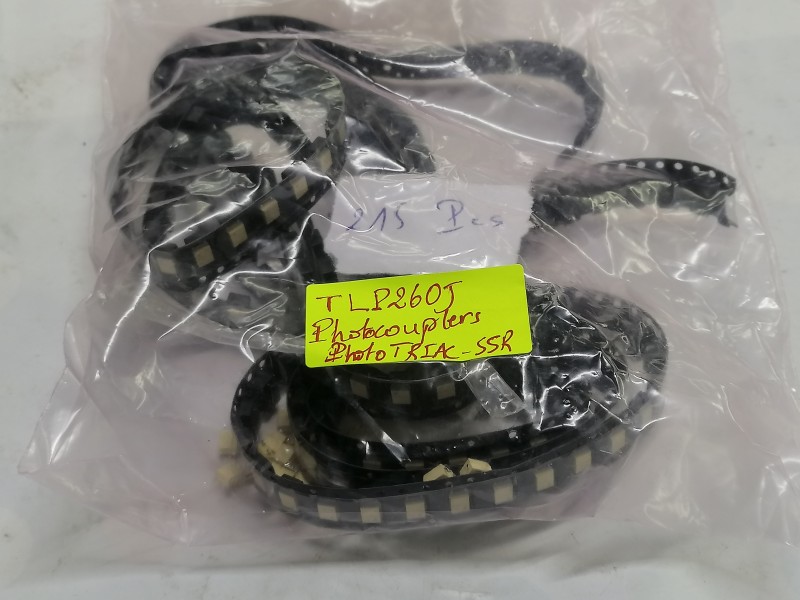 215 Pcs
TLP260J
Photocouplers
Photo TRIAC-SSR